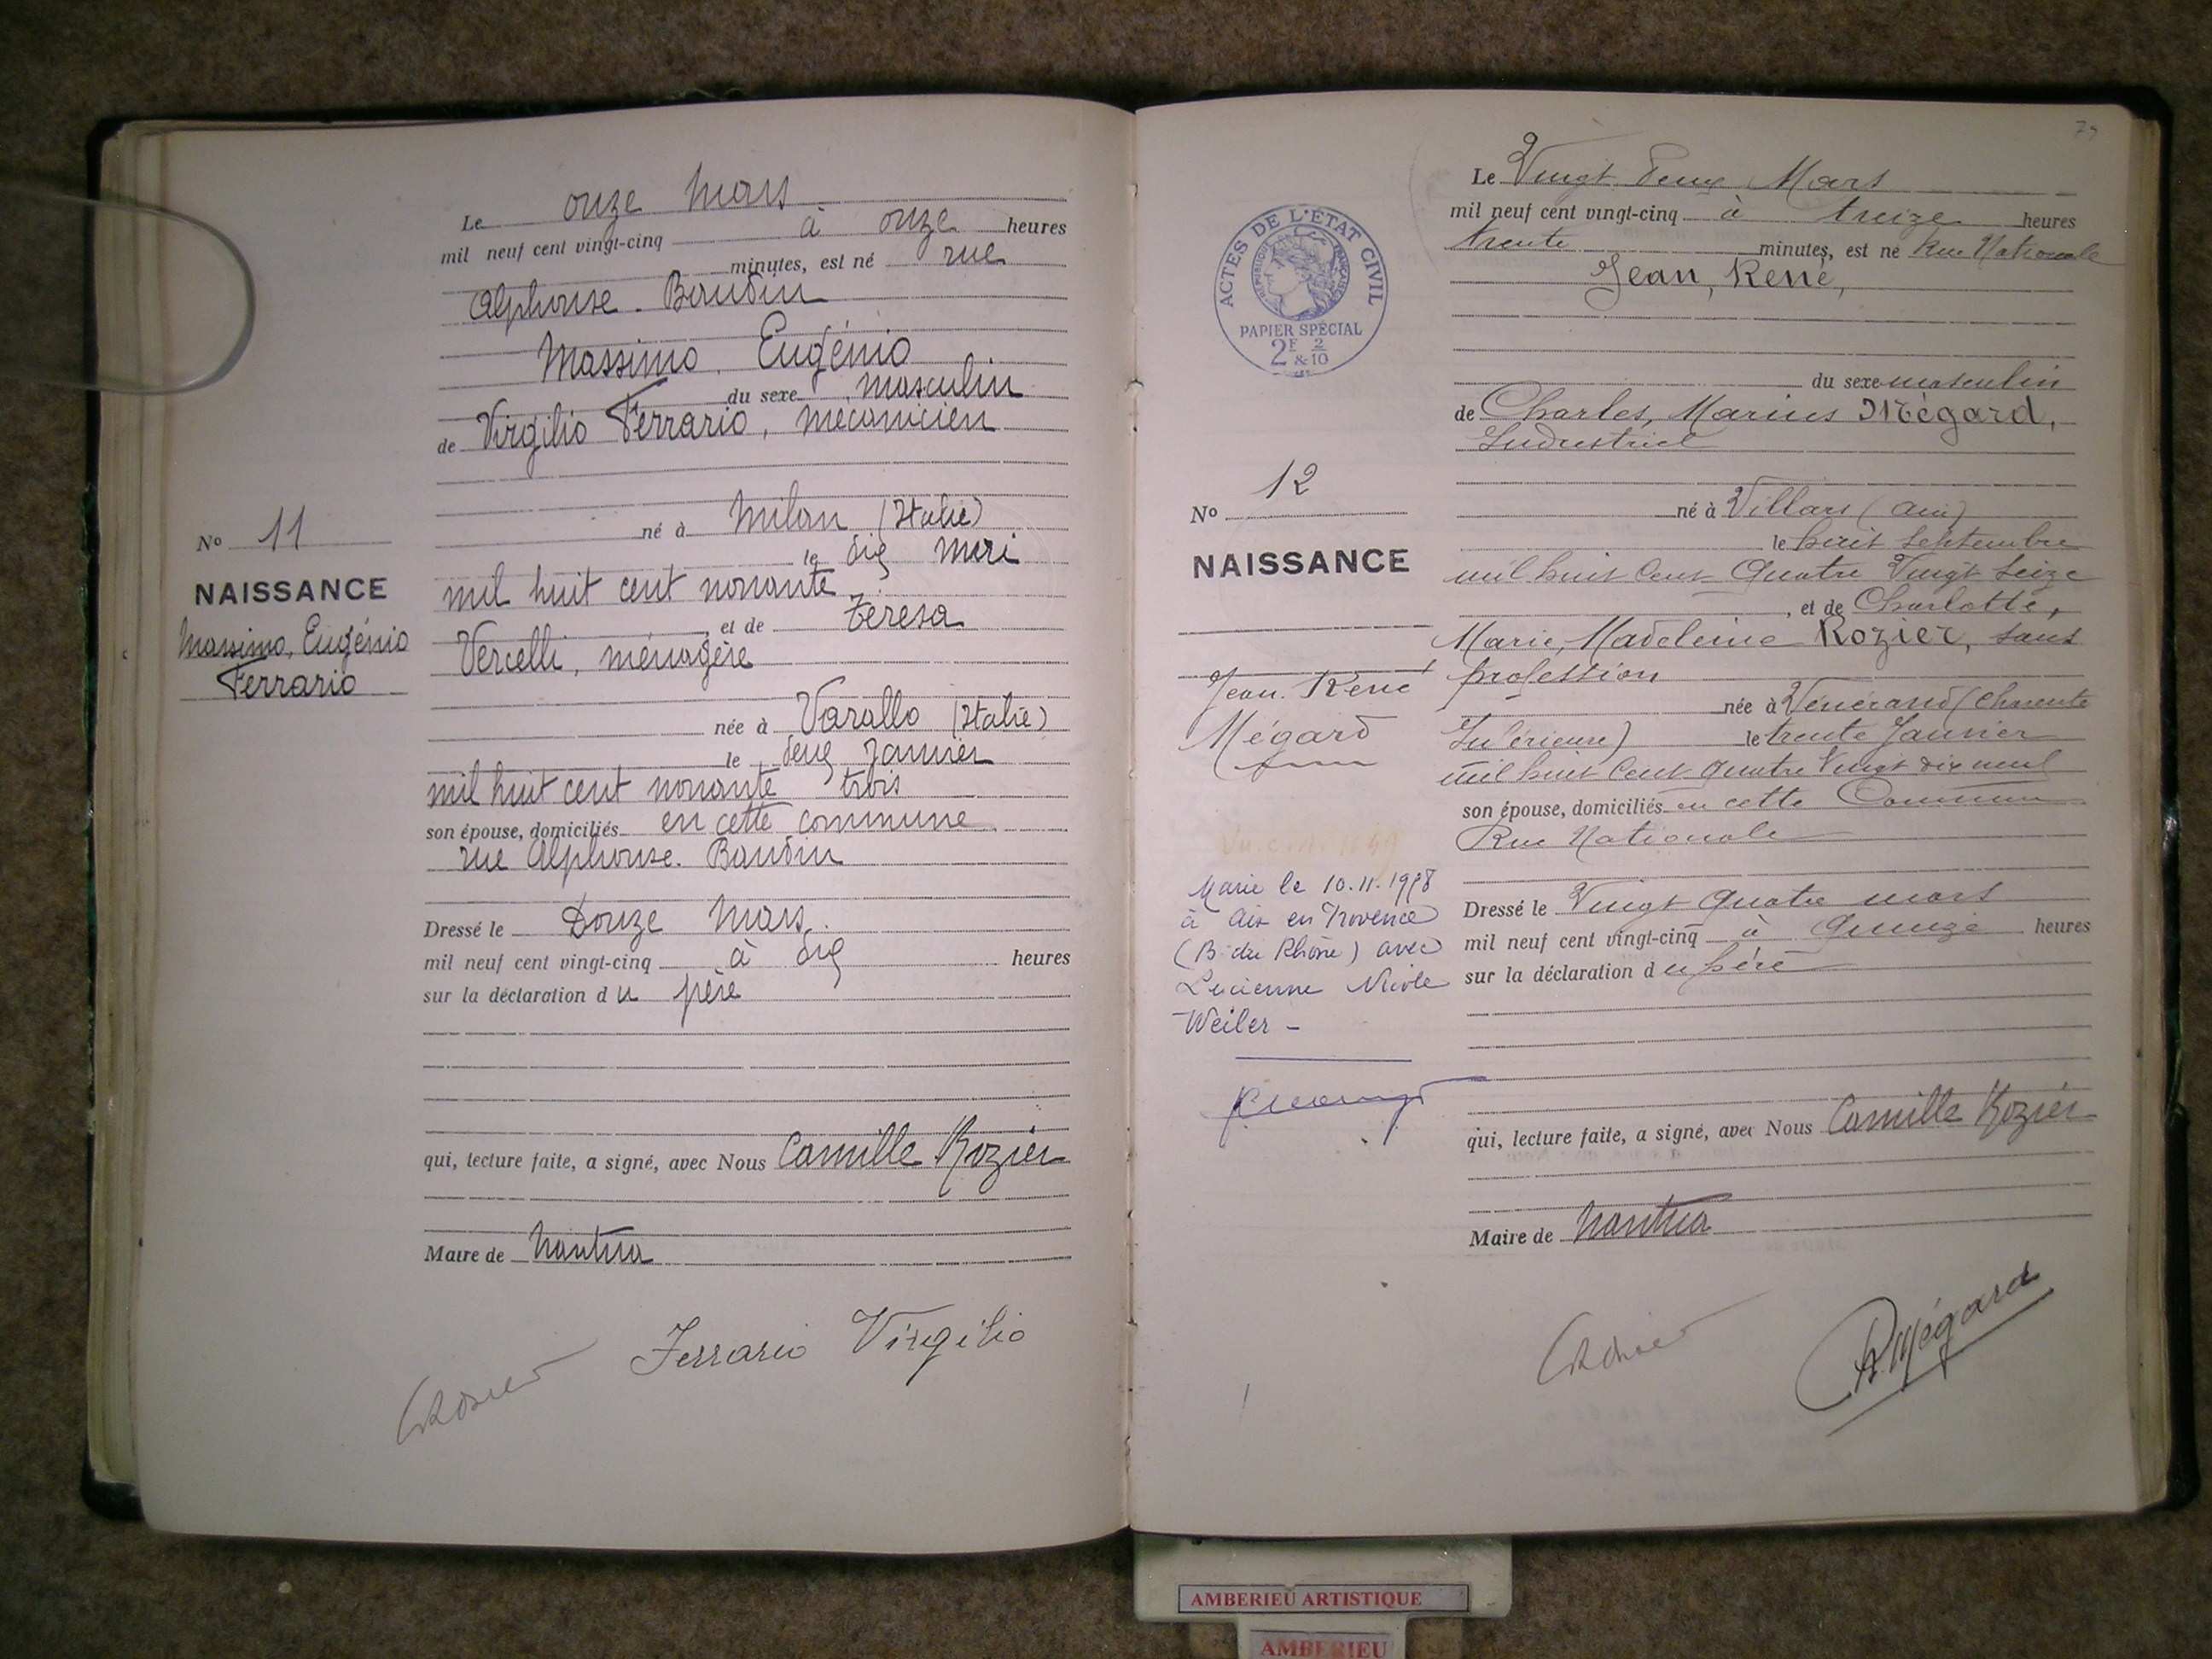 Le onze mars
mil neuf cent vingt-cinq à onze heures
minutes, est né rue
Alphonse. Baudin
Massimo, Eugénio
du sexe masculin
de Virgilio Ferrario, mécanicien
né à Milan (Italie)
le dix mai
mil huit cent nonante
, et de Teresa
Vercelli, ménagère
née à Varallo (Italie)
le deux Janvier
mil huit cent nonante trois
son épouse, domiciliés en cette commune
rue Alphonse. Baudin
Dressé le Douze mars
mil neuf cent vingt-cinq à dix heures
sur la déclaration du père
qui, lecture faite, a signé, avec Nous Camille Rozier
Maire de Nantua
Ferrario Virgilio
No 11
NAISSANCE
Massimo, Eugénio
Ferrario
Le Vingt deux Mars
mil neuf cent vingt-cinq à treize heures
trente minutes, est né Rue Nationale
Jean, René,
du sexe masculin
de Charles, Marius Mégard,
Industriel
né à Villars (Ain)
le huit Septembre
mil huit cent Quatre Vingt Seize
, et de Charlotte,
Marie, Madeleine Rozier, sans
profession
née à Vénérand (Charente
Inférieure) le trente Janvier
mil huit cent quatre Vingt dix neuf
son épouse, domiciliés en cette Commune
Rue Nationale
Dressé le Vingt Quatre mars
mil neuf cent vingt-cinq à Quinze heures
sur la déclaration du père
qui, lecture faite, a signé, avec Nous Camille Rozier
Maire de Nantua
Mégard
ACTES DE L'ÉTAT CIVIL
RÉPUBLIQUE FRANÇAISE
PAPIER SPÉCIAL
2F 2
& 10
No 12
NAISSANCE
Jean. René
Mégard
Marié le 10.11.1998
à Aix en Provence
(B. du Rhône) avec
Lucienne Nicole
Weiler -
AMBERIEU ARTISTIQUE
AMBERIEU